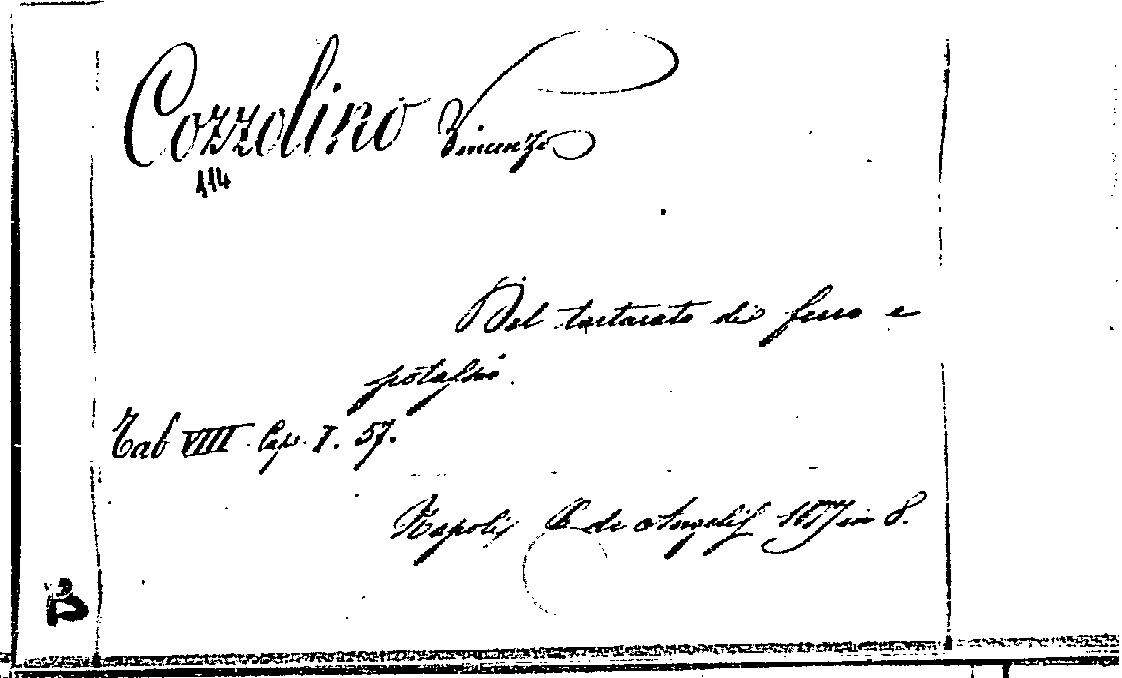 Cozzolino Vincenzo
114
Del tartarato di ferro e
potassio.
Tab VIII Cap. I. 57.
Napoli de Angelis 1877 in 8.
B